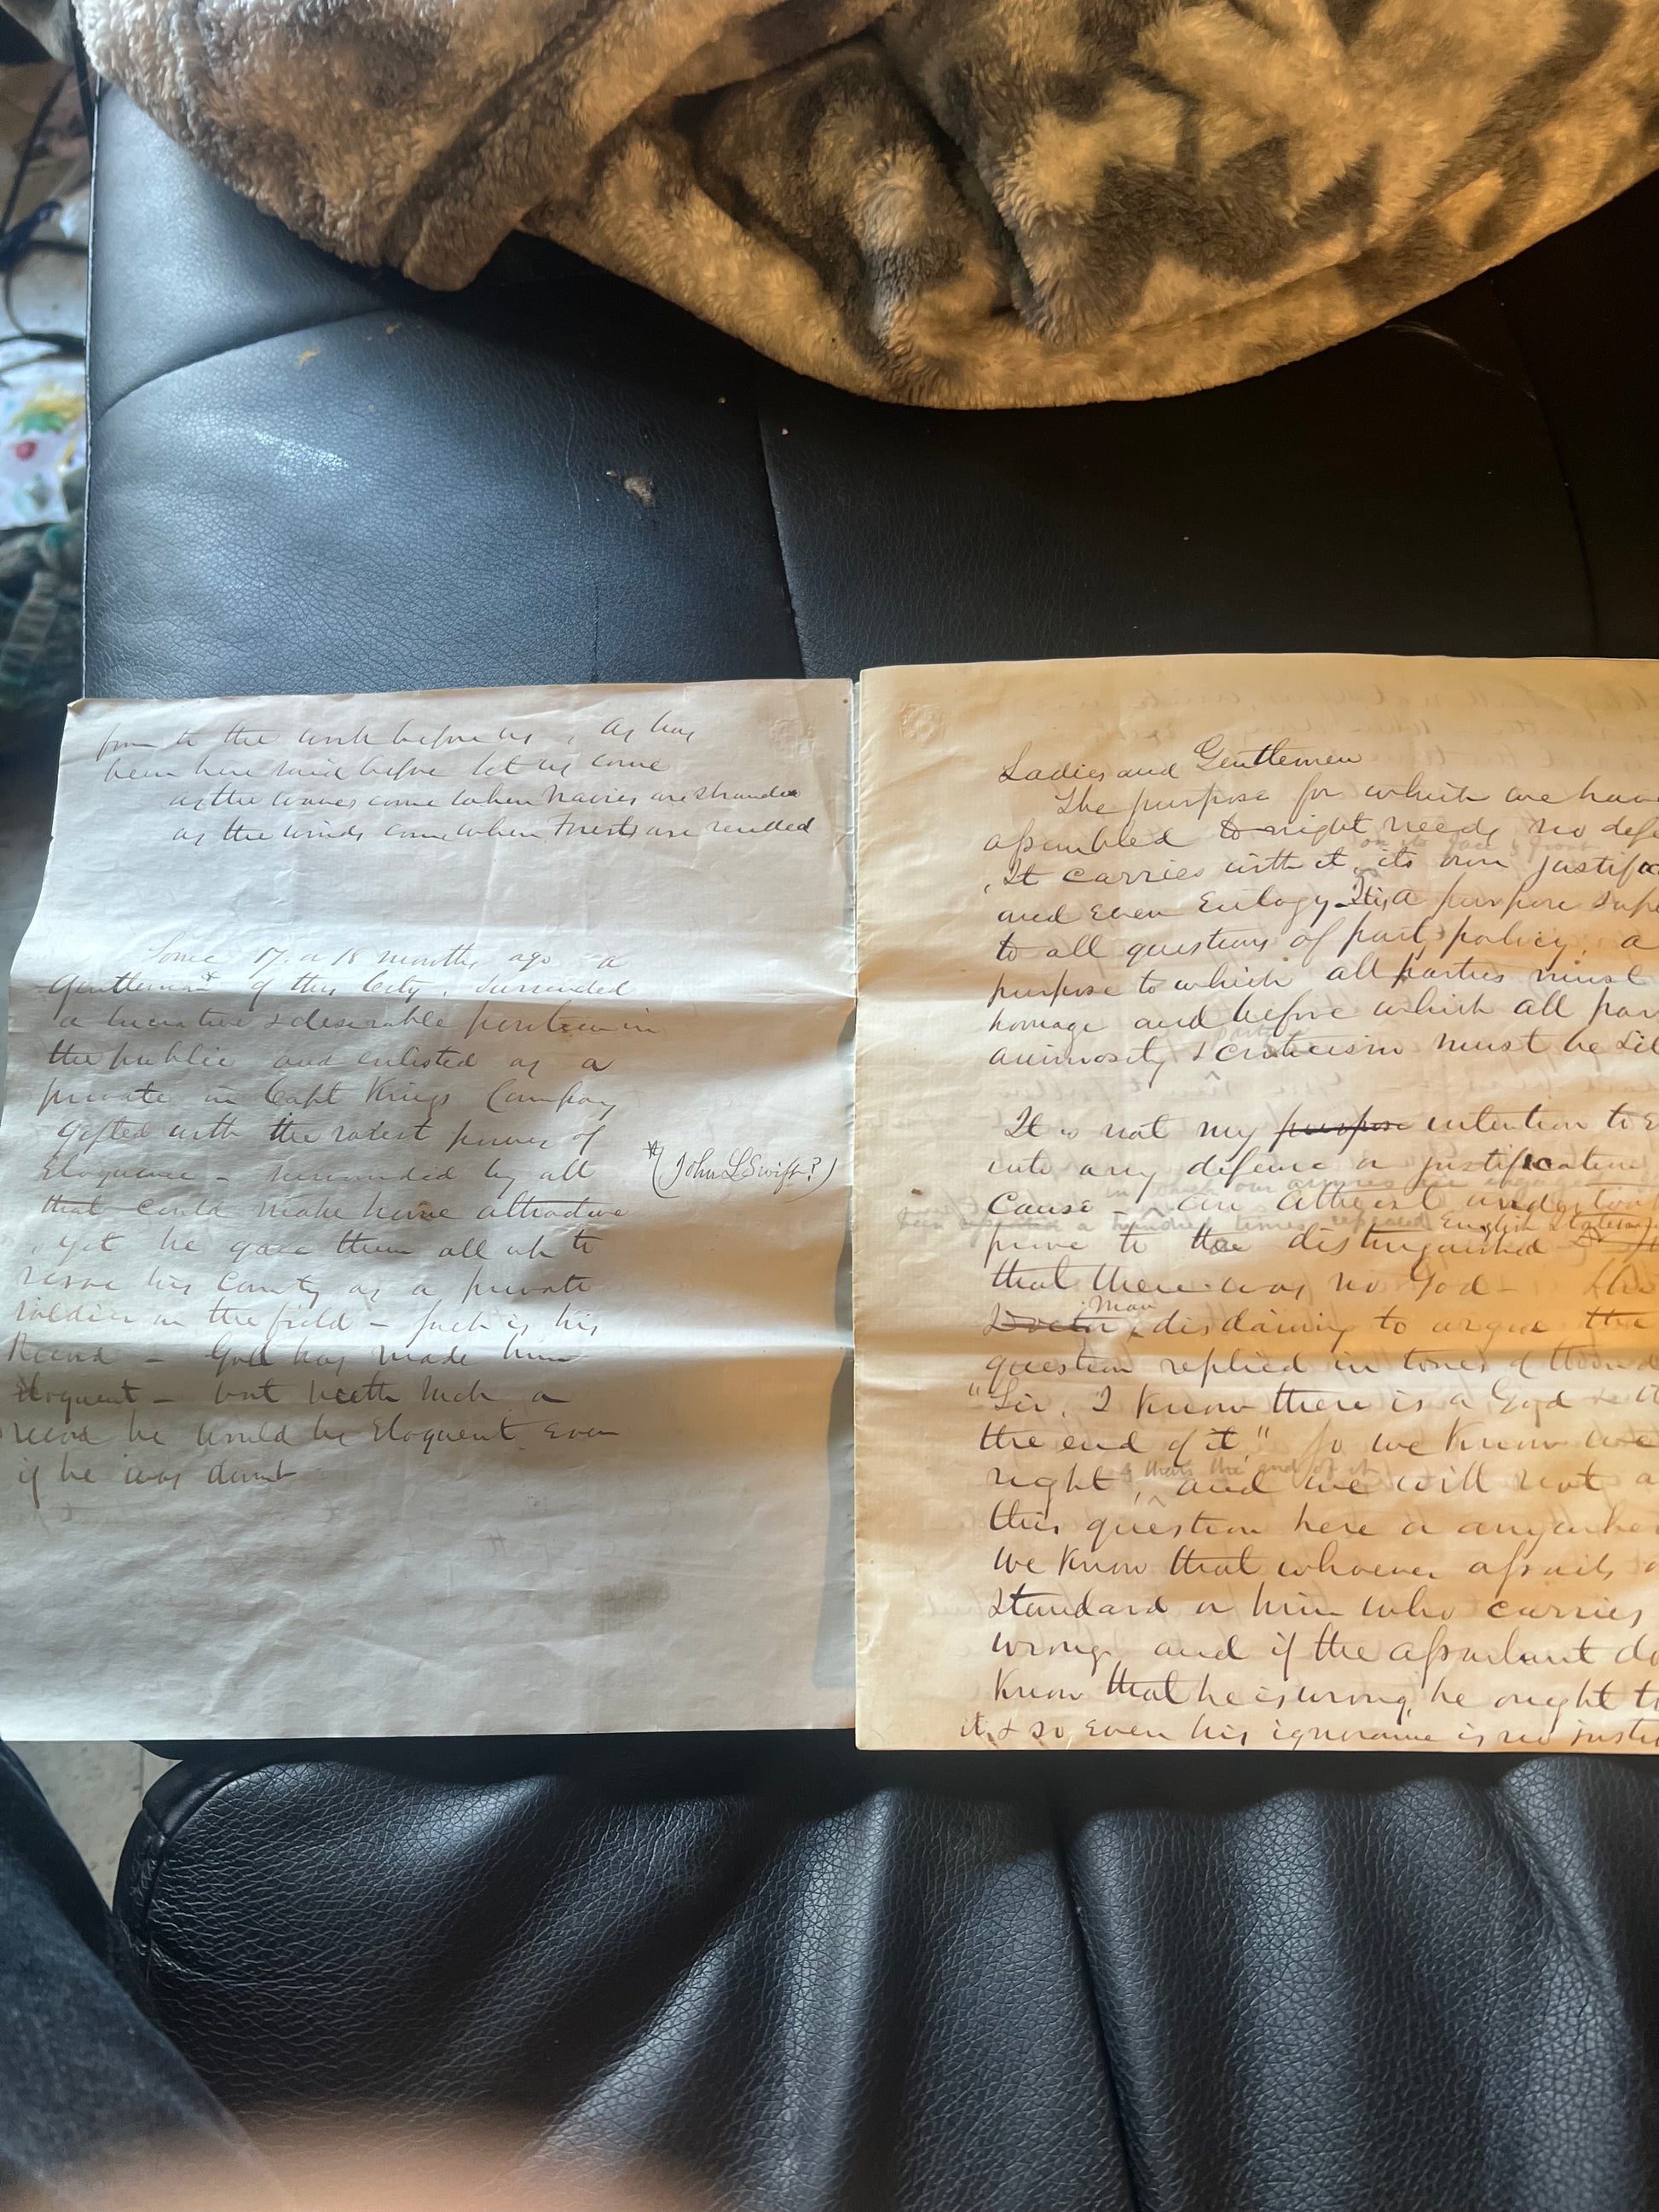 from to the work before us, as has
been here said before let us come
as the waves come when Navies are stranded
as the winds come when Forests are rended
Some 17 or 18 months ago a
Gentleman* of this City, surrended
a lucrative & desirable position in
the public and enlisted as a
private in Capt Kings Company
Gifted with the rarest power of
Eloquence - surrounded by all
that could make home attractive
, yet he gave them all up to
serve his County as a private
soldier in the field - such is his
Record - God has made him
Eloquent - but with such a
record he would be Eloquent even
if he was dumb
*(John L Swift?)
Ladies and Gentlemen
The purpose for which we have
assembled to night needs no
on its face & front
It carries with it, its own
and even Eulogy - It is a purpose
to all questions of party policy, a
purpose to which all parties must
homage and before which all
animosity & criticism must be
It is not my purpose intention to
into any defence or justification
in which our armies are engaged
cause - An Atheist
a hundred times repeated English
prove to the distinguished
that there was no God -
Man
Doctor, disdaining to argue the
question replied in tones of
"Sir, I know there is a God &
the end of it." So we know we
& thats the end of it
right, and we will not
this question here or
We know that whoever assails
Standard or him who carries
wrong, and if the assailant
know that he is wrong, he ought
it, & so even his ignorance is no